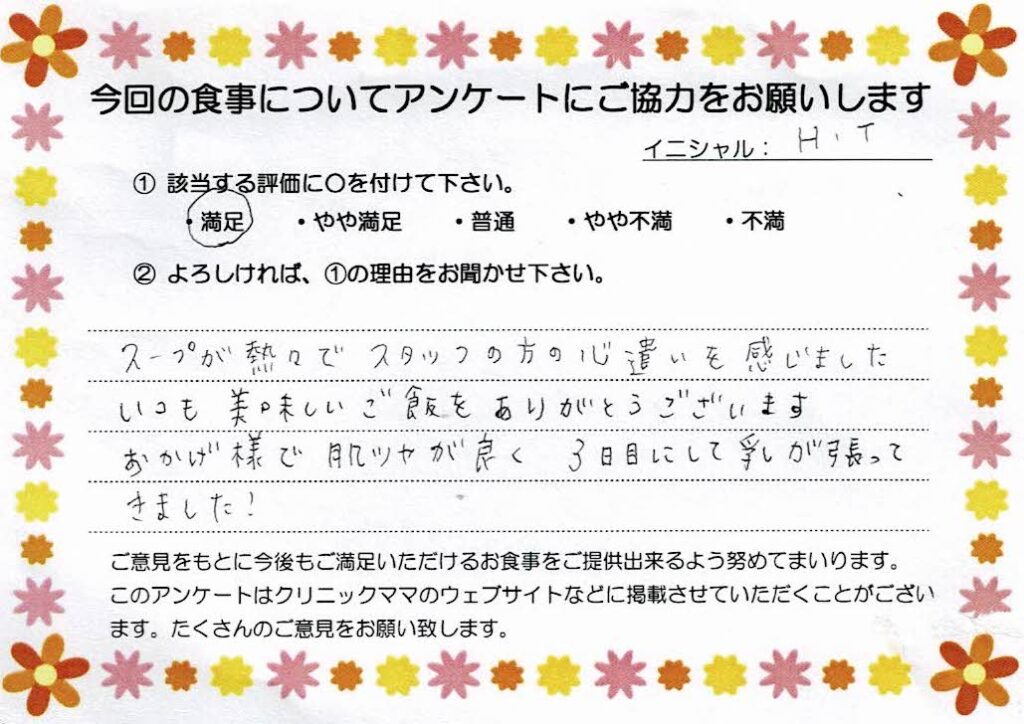 今回の食事についてアンケートにご協力をお願いします
イニシャル： H・T
① 該当する評価に〇を付けて下さい。
・満足 ・やや満足 ・普通 ・やや不満 ・不満
② よろしければ、①の理由をお聞かせ下さい。
スープが熱々で スタッフの方の心遣いを感じました
いつも美味しいご飯をありがとうございます
おかげ様で 肌ツヤが良く 3日目にして乳が張って
きました!
ご意見をもとに今後もご満足いただけるお食事をご提供出来るよう努めてまいります。
このアンケートはクリニックママのウェブサイトなどに掲載させていただくことがござい
ます。たくさんのご意見をお願い致します。